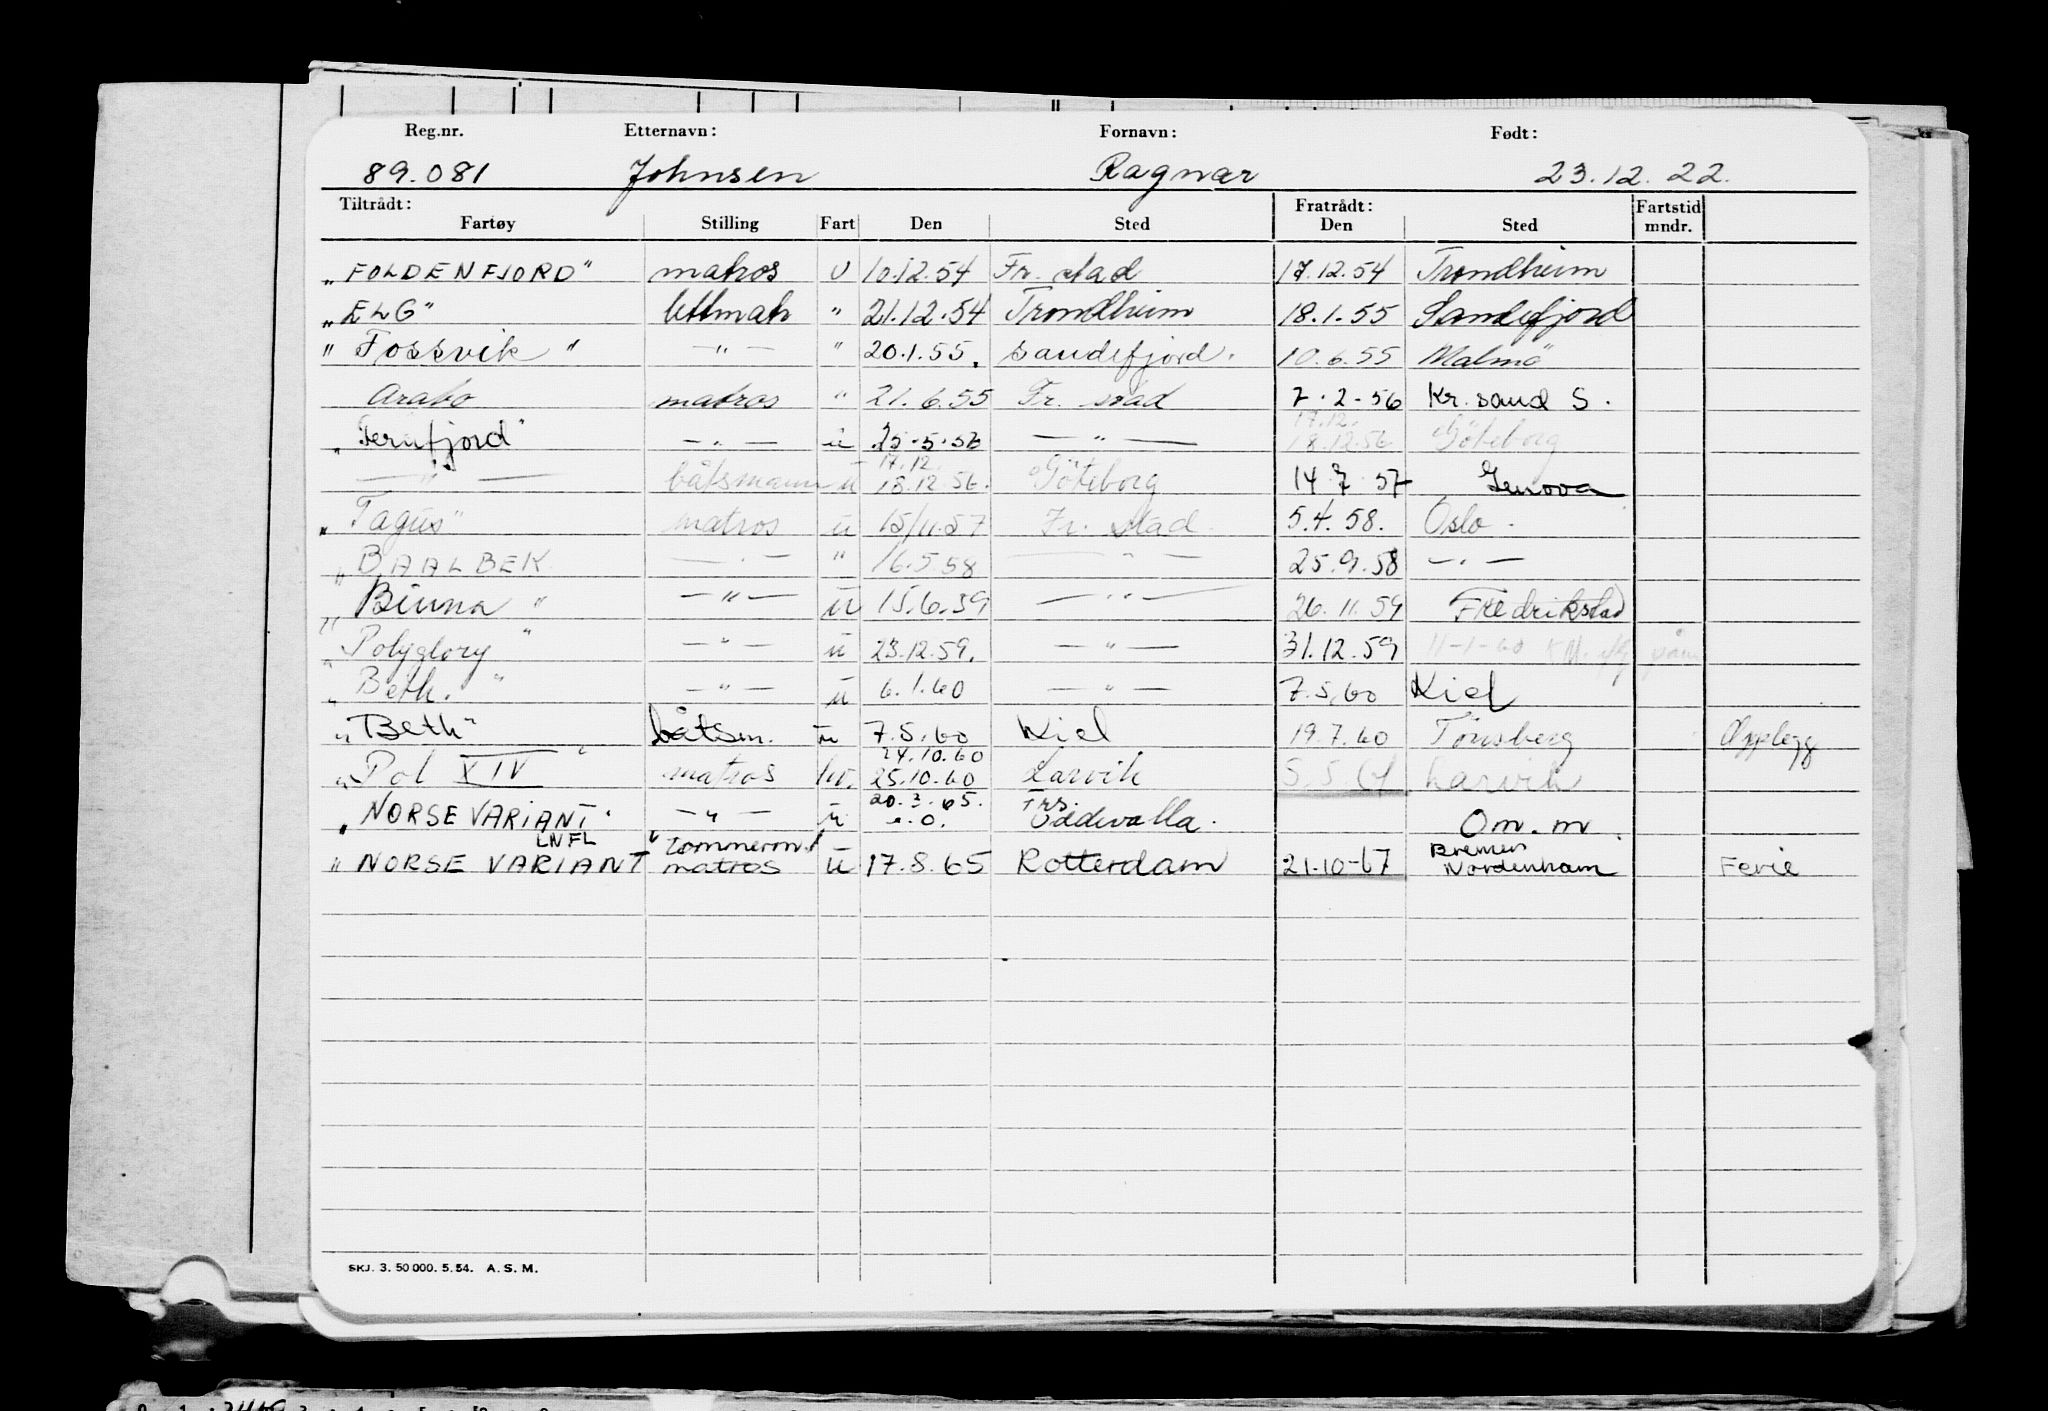 Reg.nr. Etternavn: Fornavn: Født:
89.081 Johnsen Ragnar 23.12.22.
Tiltrådt: Fratrådt: Fartstid
Fartøy Stilling Fart Den Sted Den Sted mndr.
„FOLDENFJORD" matros U 10.12.54 Fr. stad 17.12.54 Trondheim
„ELG" lettmatr " 21.12.54 Trondheim 18.1.55 Sandefjord
"Fossvik" — " — " 20.1.55. Sandefjord. 10.6.55 Malmö
Arabo matros " 21.6.55 Fr. stad 7.2-56 Kr.sand S.
17.12.
„Ternfjord" — " — u 25.5.56 — " — 18.12.56 Göteborg
17.12.
— " — båtsmann u 18.12.56. Göteborg 14.7.57 Genova
„Tagus" matros u 15/11.57 Fr. stad. 5.4.58. Oslo.
„BAALBEK — " — " 16.5.58 — " — 25.9.58 — " —
"Binna" — " — u 15.6.59 — " — 26.11.59 Fredrikstad
„Polyglory" — " — u 23.12.59. — " — 31.12.59 11-1-60
„Beth." — " — u 6.1.60 — " — 7.5.60 Kiel
„Beth" båtsm. u 7.5.60 Kiel 19.7.60 Tönsberg Opplegg
24.10.60
„Pol XIV" matros hv. 25.10.60 Larvik 5.5.61 Larvik
20.3.65. Frs.
„NORSE VARIANT" — " — u e.o. Uddevalla. Om.m.
LNFL tømmerm. Bremen
"NORSE VARIANT matros u 17.8.65 Rotterdam 21.10-67 Nordenham Ferie
SKJ. 3. 50 000. 5. 54. A. S. M.